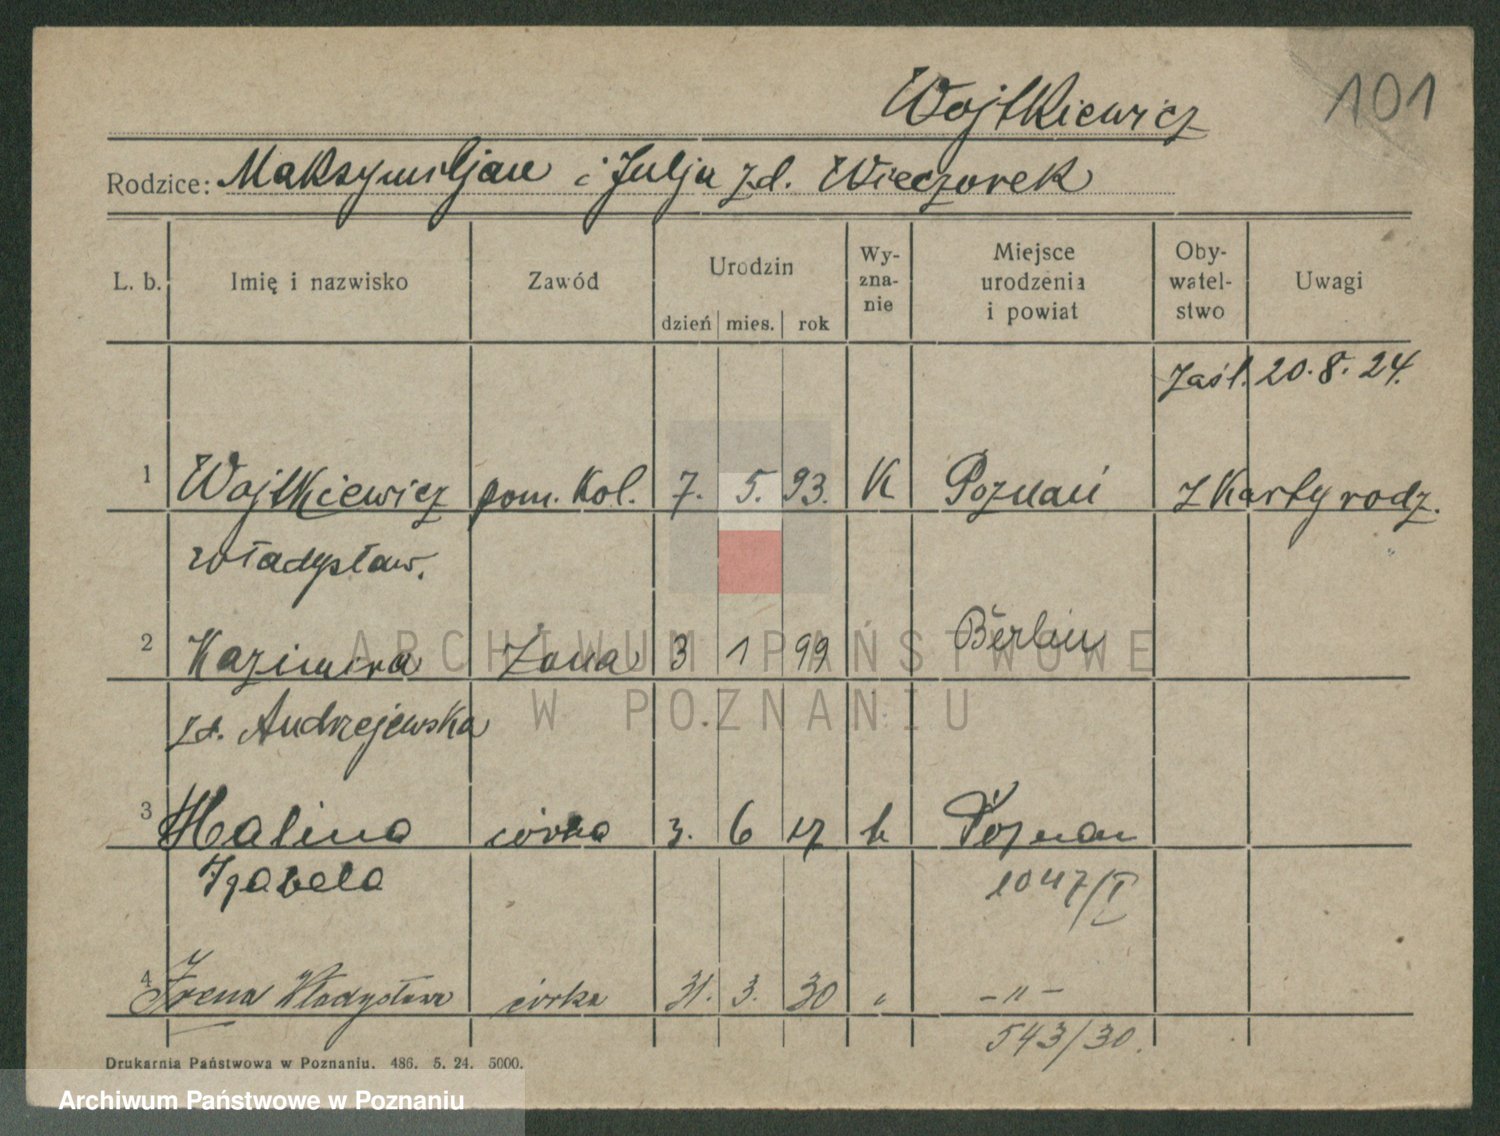 Wojtkiewicz
101
Rodzice: Maksymiljan i Julja zd. Wieczorek
L. b. Imię i nazwisko Zawód Urodzin dzień mies. rok Wy-zna-nie Miejsce urodzenia i powiat Oby-watel-stwo Uwagi
Zaśl. 20.8.24.
1 Wojtkiewicz pom. Kol. 7. 5. 93. K Poznań Z Karty rodz.
Władysław.
2 Kazimira Żona 3 1 99 Berlin
zd. Andrzejewska
3 Halina córka 3. 6 k Poznań
Izabela 1047/I
4 Irena Władysława córka 31. 3. 30 " -"-
543/30.
Drukarnia Państwowa w Poznaniu. 486. 5. 24. 5000.
ARCHIWUM PAŃSTWOWE
W POZNANIU
Archiwum Państwowe w Poznaniu